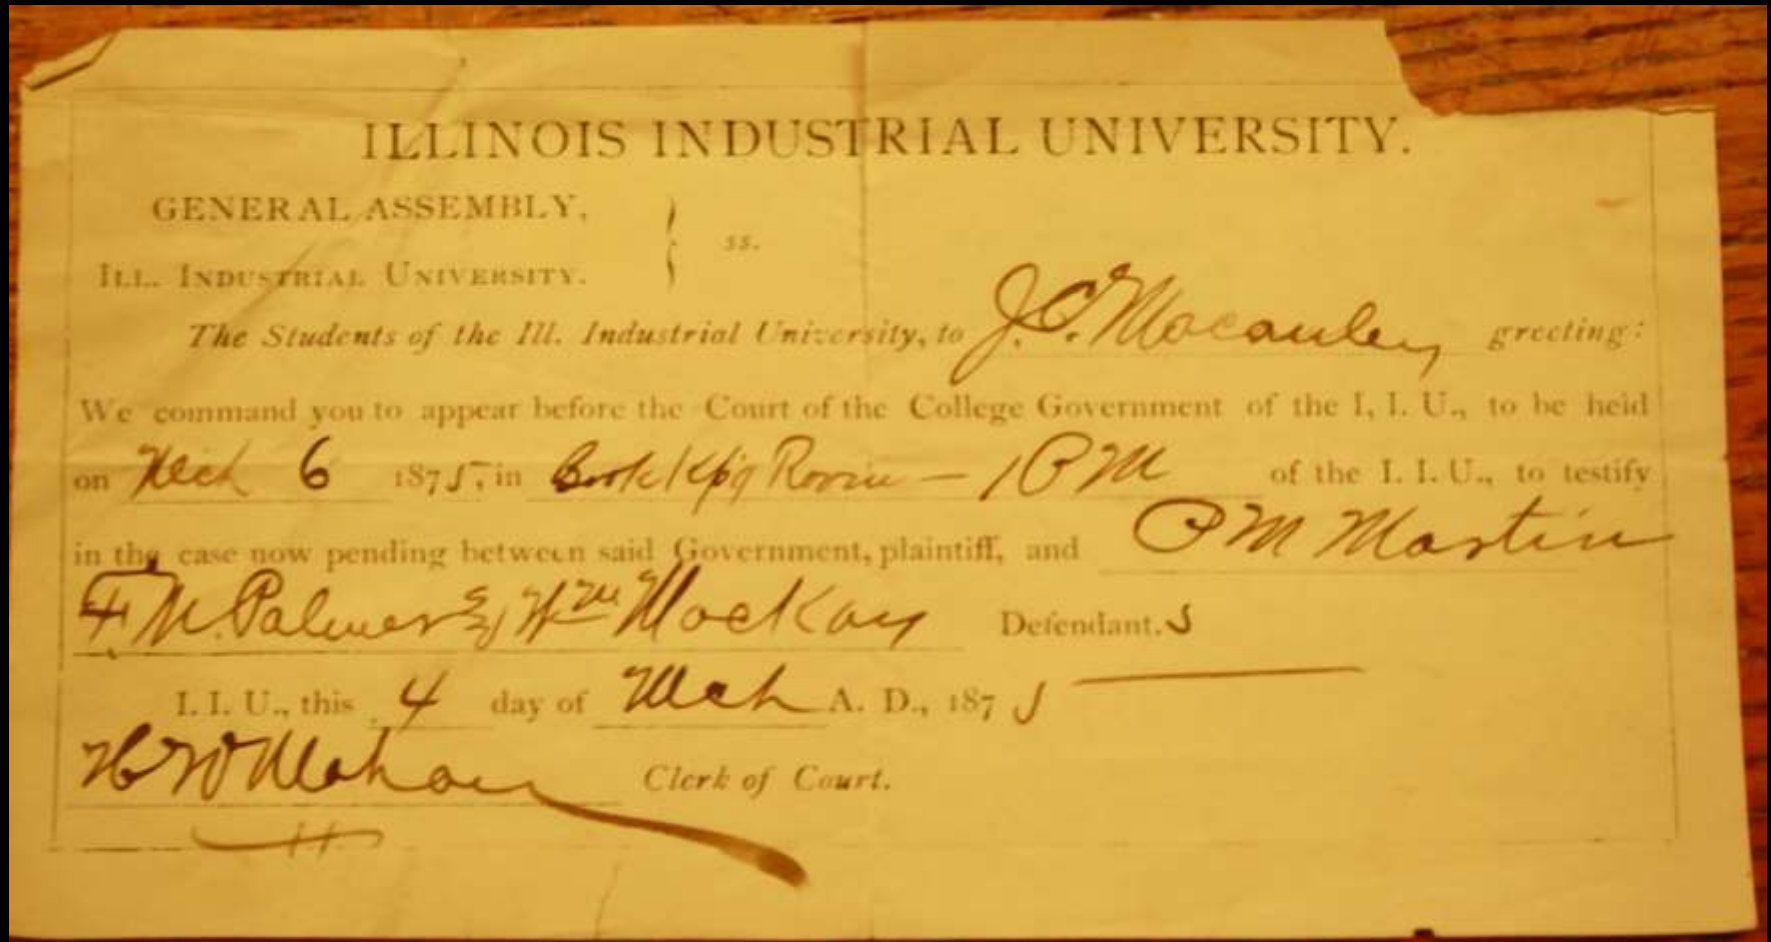 ILLINOIS INDUSTRIAL UNIVERSITY.
GENERAL ASSEMBLY,
ILL. INDUSTRIAL UNIVERSITY. } ss.
The Students of the Ill. Industrial University, to J.C. Macauley greeting:
We command you to appear before the Court of the College Government of the I, I. U., to be held
on Mch 6 1875, in Book Kp'g Room — 1 PM of the I. I. U., to testify
in the case now pending between said Government, plaintiff, and P M Martin
F M. Palmer & Wm MacKay Defendant.s
I. I. U., this 4 day of Mch A. D., 1875
H W Mahan Clerk of Court.